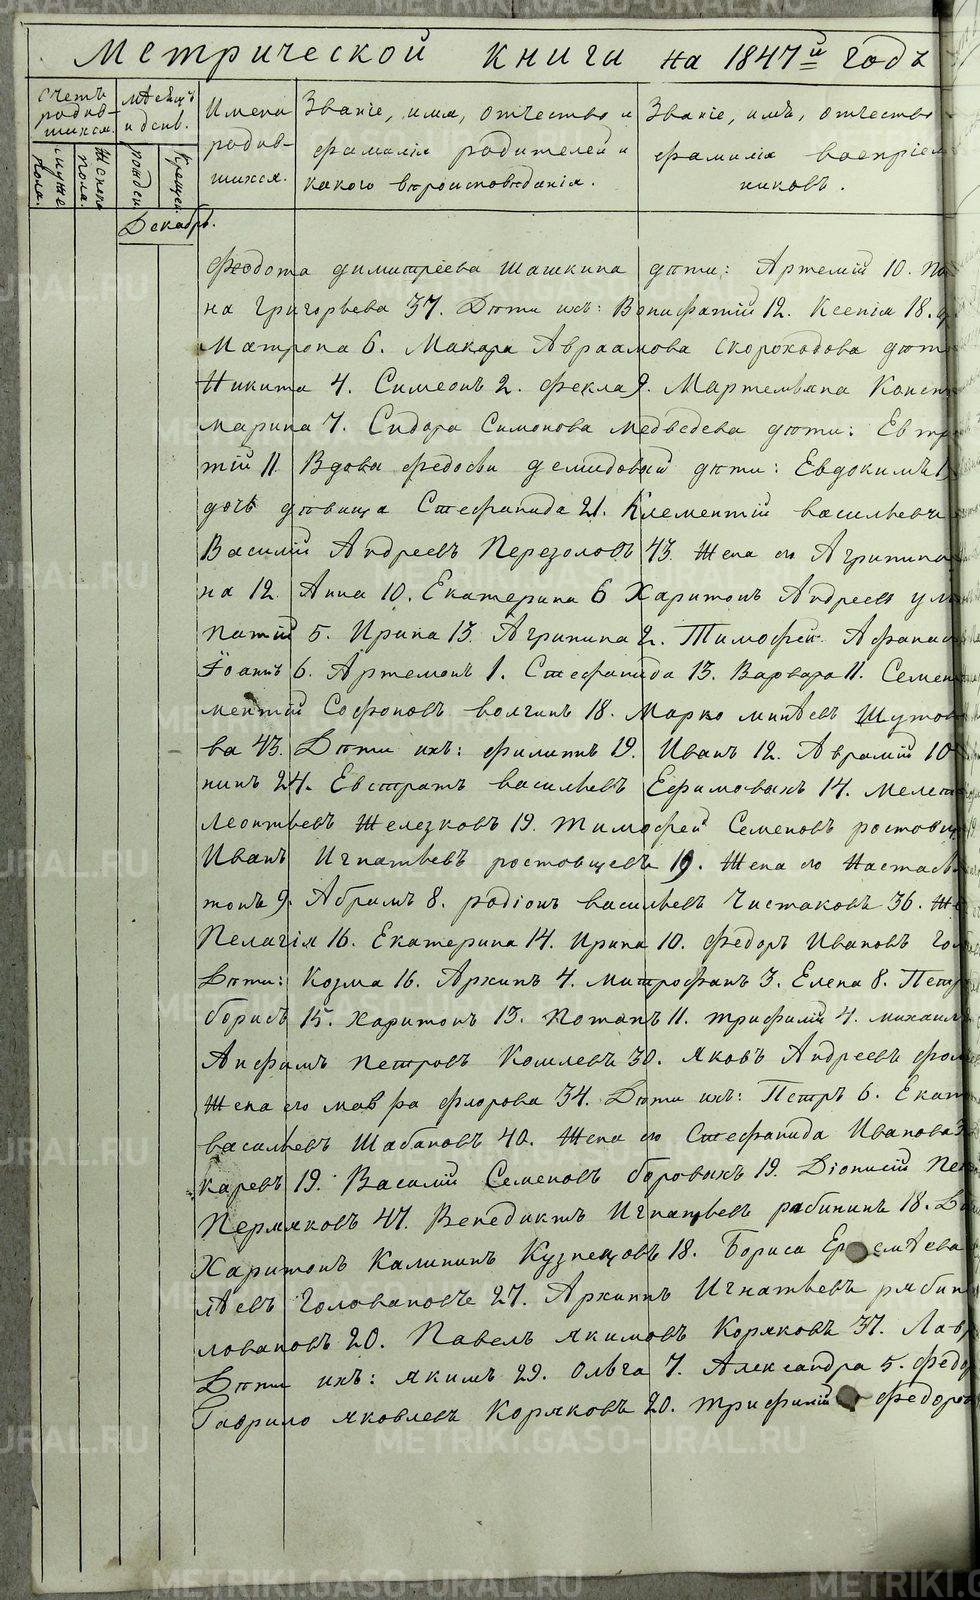 Метрической книги на 1847й годъ
Счетъ родив-шихся.
Мѣсяцъ и день.
Имена родив-шихся.
Званіе, имя, отчество и фамилія родителей и какого вѣроисповѣданія.
Званіе, имя, отчество фамилія воспріем никовъ.
мужс. пола.
Женск. пола.
рожден
Крещен
Декабрь.
Федота димитріева Шашкина дѣти: Артемій 10.
на Григорьева 37. Дѣти ихъ: Вонифатій 12. Ксенія 18.
Матрона 6. Макара Авраамова Скороходова дѣт
Никита 4. Симеонъ 2. Фекла 9. Мартемьяна Конст
марина 7. Сидора Симонова Медвѣдева дѣти: Евтр
тій 11 Вдовы Федосьи демидовой дѣти: Евдокимъ
дочь дѣвица Стефанида 21. Клементій васильевъ
Василій Андреевъ Перезоловъ 43. Жена его Агрипина
на 12. Анна 10. Екатерина 6 Харитонъ Андреевъ
патій 5. Ирина 13. Агрипина 2. Тимофей Афанас
Іоаннъ 6. Артемонъ 1. Стефанида 13. Варвара 11. Семен
ментій Софоновъ волгинъ 18. Марко минѣевъ Шутов
ва 43. Дѣти ихъ: филиппъ 19. Иванъ 12. Аврамій 10
нинъ 24. Евстратъ васильевъ Ефимовыхъ 14. Мелет
Леонтьевъ Железковъ 19. Тимофей Семеновъ ростовщ
Иванъ Игнатьевъ ростовщевъ 19. Жена его Настась
тонъ 9. Абрамъ 8. родіонъ васильевъ Чистяковъ 36. Же
Пелагія 16. Екатерина 14. Ирина 10. Федоръ Ивановъ Гол
Дѣти: Козма 16. Архипъ 4. митрофанъ 3. Елена 8. Петр
борисъ 15. Харитонъ 13. Потапъ 11. трифилій 4. михаил
Анфимъ петровъ Кошлевъ 30. яковъ Андреевъ
Жена его мавра флорова 34. Дѣти ихъ: Петръ 6. Екат
васильевъ Шабановъ 40. Жена его Стефанида Иванова
каревъ 19. Василій Семеновъ боровыхъ 19. Діонисій
Пермяковъ 47. Венедиктъ Игнатьевъ рябининъ 18.
Харитонъ Калининъ Кузнецовъ 18. Бориса Еремѣева
лѣевъ Головановъ 27. Архиппъ Игнатьевъ рябин
ловановъ 20. Павелъ якимовъ Коряковъ 37. Лавр
Дѣти ихъ: якимъ 29. Ольга 7. Александра 5. Федо
Гаврило яковлевъ Коряковъ 20. трифилій Федоров
METRIKI.GASO-URAL.RU